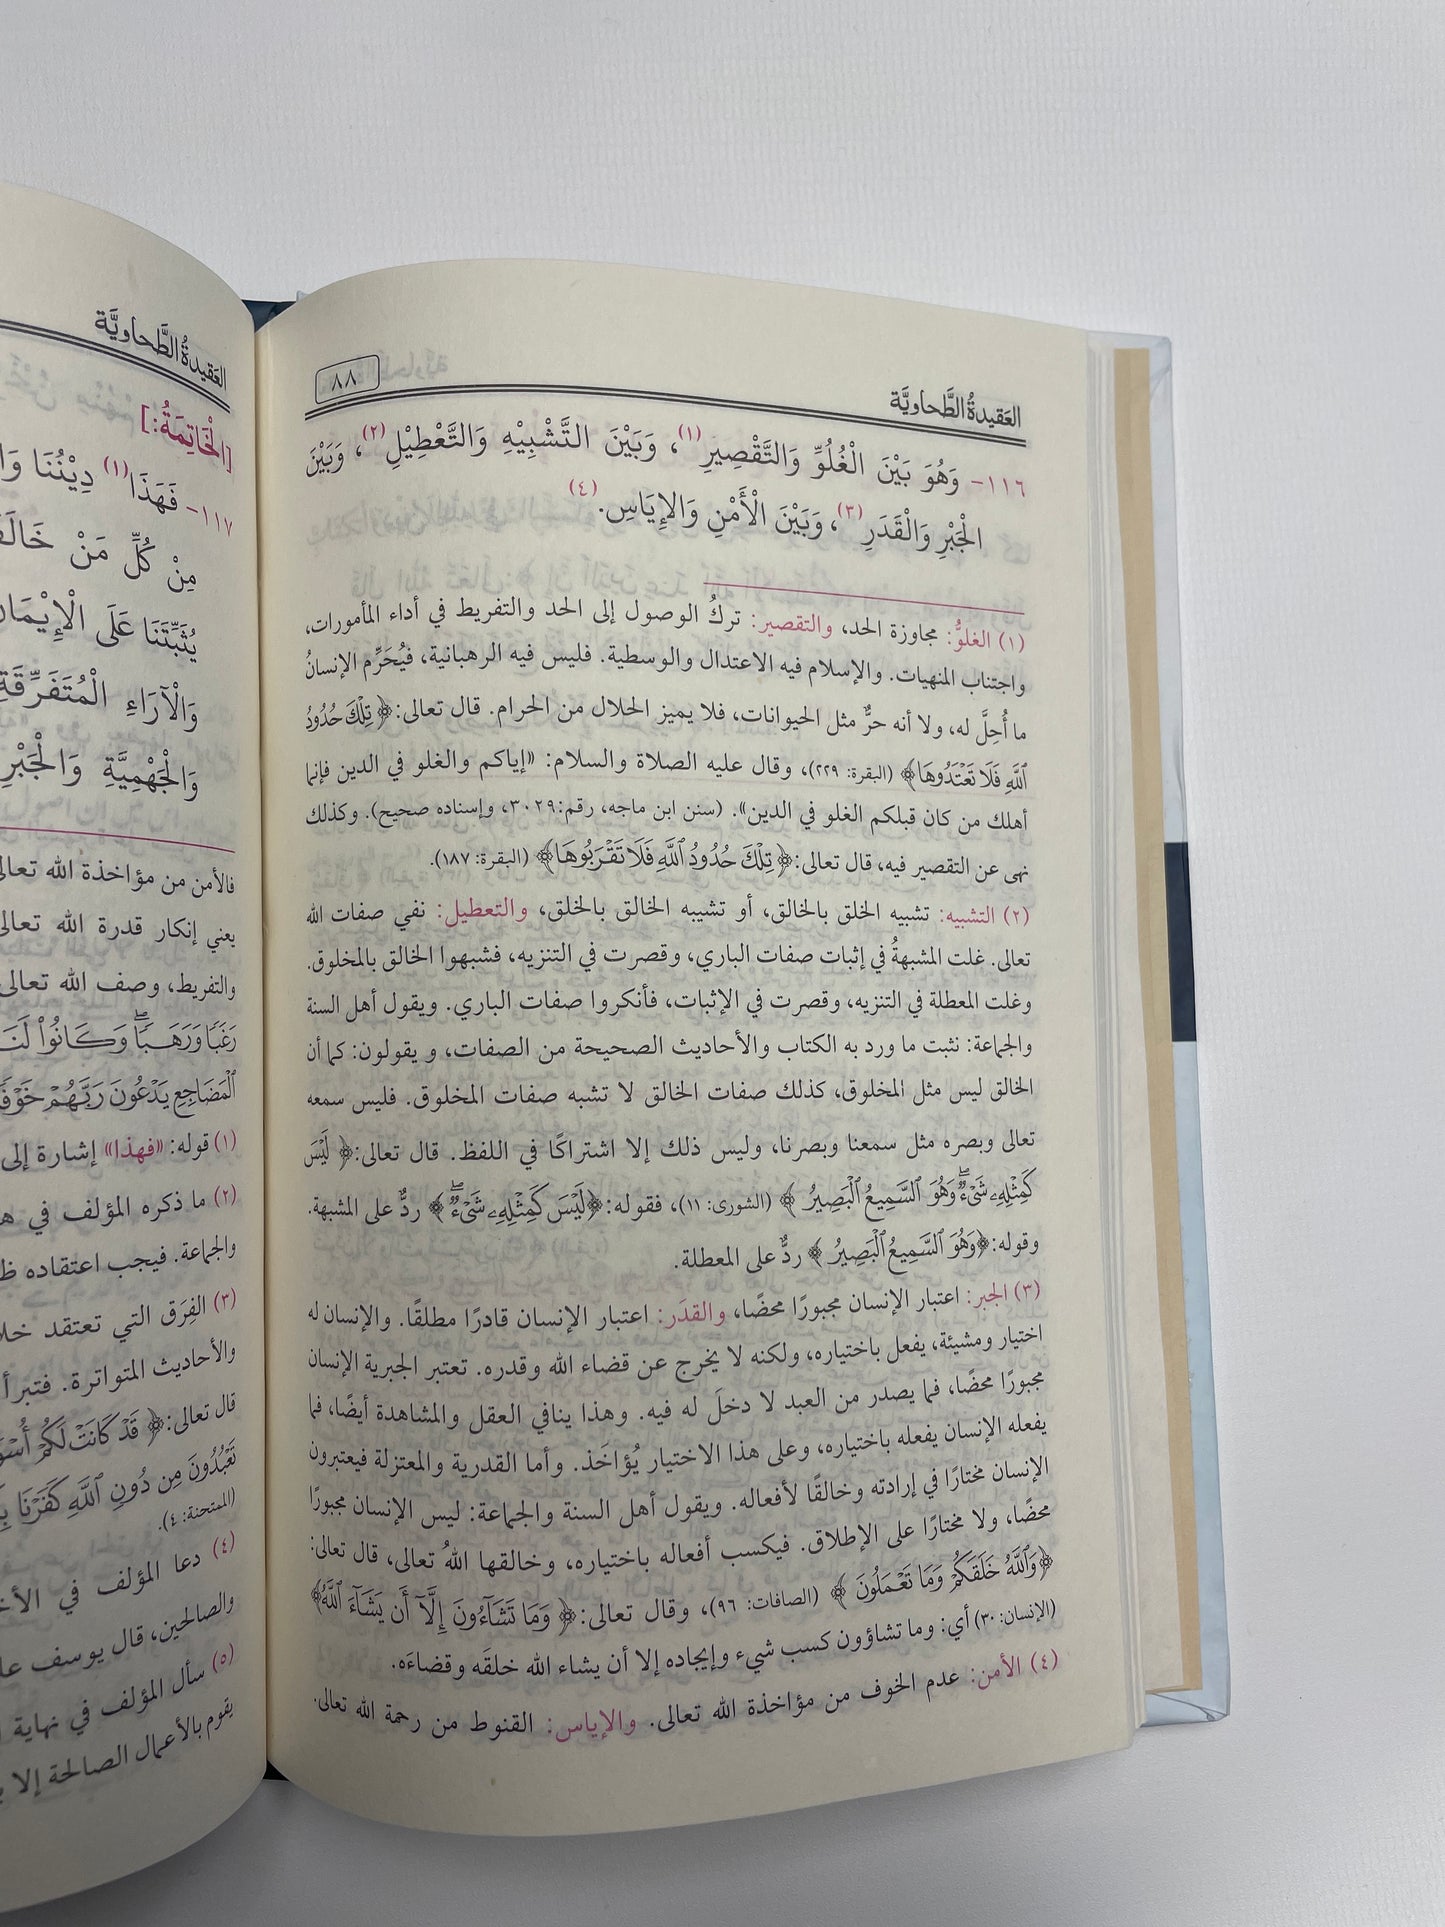 العَقيدةُ الطَّحاويَّة
٨٨
١١٦- وَهُوَ بَيْنَ الْغُلُوِّ وَالتَّقْصِيْرِ(١)، وَبَيْنَ التَّشْبِيْهِ وَالتَّعْطِيْلِ(٢)، وَبَيْنَ
الْجَبْرِ وَالْقَدَرِ(٣)، وَبَيْنَ الْأَمْنِ وَالإِيَاسِ.(٤)
(١) الغلوُّ: مجاوزة الحد، والتقصير: تركُ الوصول إلى الحد والتفريط في أداء المأمورات،
واجتناب المنهيات. والإسلام فيه الاعتدال والوسطية. فليس فيه الرهبانية، فيُحَرِّم الإنسانُ
ما أُحِلَّ له، ولا أنه حرٌّ مثل الحيوانات، فلا يميز الحلال من الحرام. قال تعالى: ﴿تِلْكَ حُدُودُ
ٱللَّهِ فَلَا تَعْتَدُوهَا﴾ (البقرة: ٢٢٩)، وقال عليه الصلاة والسلام: «إياكم والغلو في الدين فإنما
أهلك من كان قبلكم الغلو في الدين». (سنن ابن ماجه، رقم:٣٠٢٩، وإسناده صحيح). وكذلك
نهى عن التقصير فيه، قال تعالى: ﴿تِلْكَ حُدُودُ ٱللَّهِ فَلَا تَقْرَبُوهَا﴾ (البقرة: ١٨٧).
(٢) التشبيه: تشبيه الخلق بالخالق، أو تشبيه الخالق بالخلق، والتعطيل: نفي صفات الله
تعالى. غلت المشبهةُ في إثبات صفات الباري، وقصرت في التنزيه، فشبهوا الخالق بالمخلوق.
وغلت المعطلة في التنزيه، وقصرت في الإثبات، فأنكروا صفات الباري. ويقول أهل السنة
والجماعة: نثبت ما ورد به الكتاب والأحاديث الصحيحة من الصفات، و يقولون: كما أن
الخالق ليس مثل المخلوق، كذلك صفات الخالق لا تشبه صفات المخلوق. فليس سمعه
تعالى وبصره مثل سمعنا وبصرنا، وليس ذلك إلا اشتراكًا في اللفظ. قال تعالى: ﴿لَيْسَ
كَمِثْلِهِۦ شَىْءٌ ۖ وَهُوَ ٱلسَّمِيعُ ٱلْبَصِيرُ﴾ (الشورى: ١١)، فقوله: ﴿لَيْسَ كَمِثْلِهِۦ شَىْءٌ ۖ﴾ ردٌّ على المشبهة.
وقوله: ﴿وَهُوَ ٱلسَّمِيعُ ٱلْبَصِيرُ﴾ ردٌّ على المعطلة.
(٣) الجبر: اعتبار الإنسان مجبورًا محضًا، والقدَر: اعتبار الإنسان قادرًا مطلقًا. والإنسان له
اختيار ومشيئة، يفعل باختياره، ولكنه لا يخرج عن قضاء الله وقدره. تعتبر الجبرية الإنسان
مجبورًا محضًا، فما يصدر من العبد لا دخلَ له فيه. وهذا ينافي العقل والمشاهدة أيضًا، فما
يفعله الإنسان يفعله باختياره، وعلى هذا الاختيار يُؤاخَذ. وأما القدرية والمعتزلة فيعتبرون
الإنسان مختارًا في إرادته وخالقًا لأفعاله. ويقول أهل السنة والجماعة: ليس الإنسان مجبورًا
محضًا، ولا مختارًا على الإطلاق. فيكسب أفعاله باختياره، وخالقها اللهُ تعالى، قال تعالى:
﴿وَٱللَّهُ خَلَقَكُمْ وَمَا تَعْمَلُونَ﴾ (الصافات: ٩٦)، وقال تعالى: ﴿وَمَا تَشَآءُونَ إِلَّآ أَن يَشَآءَ ٱللَّهُ﴾
(الإنسان: ٣٠) أي: وما تشاؤون كسب شيء وإيجاده إلا أن يشاء الله خلقَه وقضاءَه.
(٤) الأمن: عدم الخوف من مؤاخذة الله تعالى. والإياس: القنوط من رحمة الله تعالى.
العَقيدةُ الطَّحاويَّة
[الْخَاتِمَةُ:]
١١٧- فَهَذَا(١) دِيْنُنَا
مِنْ كُلِّ مَنْ
يُثَبِّتَنَا عَلَى الْإِيْمَانِ
وَالْآرَاءِ الْمُتَفَرِّقَةِ
وَالْجَهْمِيَّةِ وَالْجَبْرِ
فالأمن من مؤاخذة الله تعالى
يعني إنكار قدرة الله تعالى
والتفريط، وصف الله تعالى
رَغَبًا وَرَهَبًا ۖ وَكَانُوا۟
ٱلْمَضَاجِعِ يَدْعُونَ رَبَّهُمْ
(١) قوله: «فهذا» إشارة إلى
(٢) ما ذكره المؤلف في
والجماعة. فيجب اعتقاده
(٣) الفِرَق التي تعتقد
والأحاديث المتواترة.
قال تعالى: ﴿قَدْ كَانَتْ لَكُمْ
تَعْبُدُونَ مِن دُونِ ٱللَّهِ كَفَرْنَا
(الممتحنة: ٤).
(٤) دعا المؤلف في
والصالحين، قال يوسف
(٥) سأل المؤلف في نهاية
يقوم بالأعمال الصالحة إلا